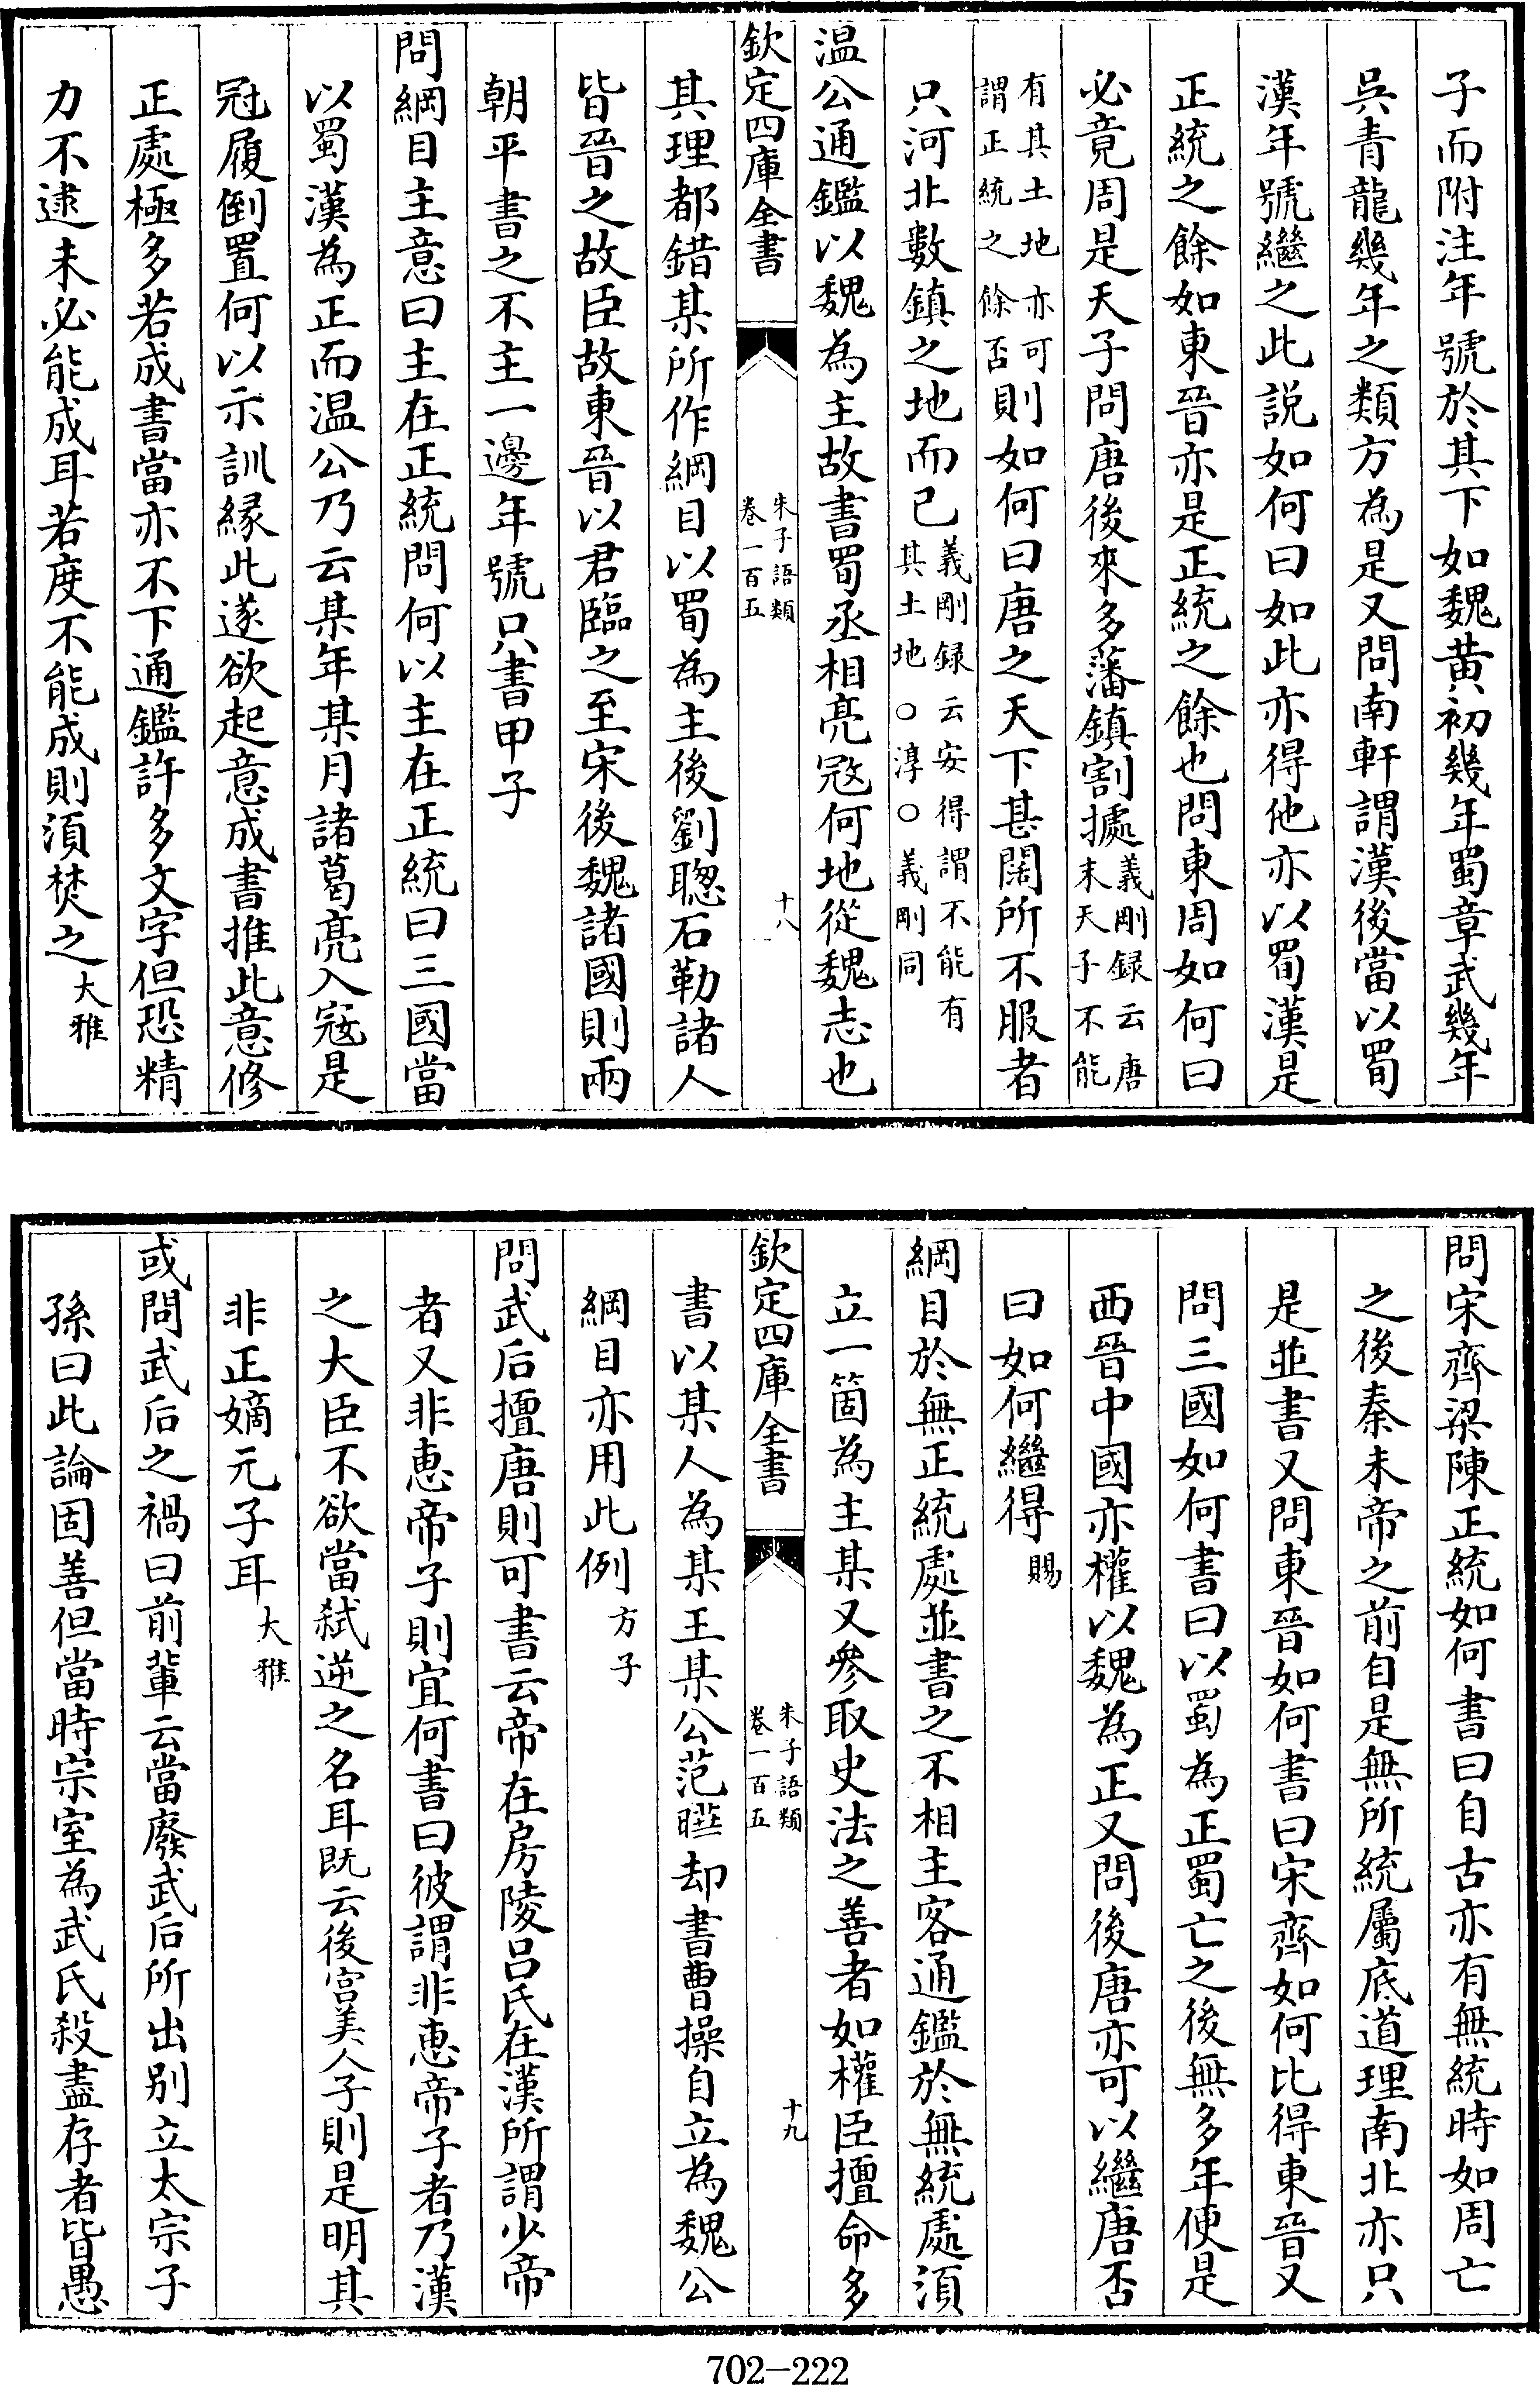 子而附注年號於其下如魏黄初幾年蜀章武幾年
吳青龍幾年之類方為是又問南軒謂漢後當以蜀
漢年號繼之此説如何曰如此亦得他亦以蜀漢是
正統之餘如東晉亦是正統之餘也問東周如何曰
必竟周是天子問唐後來多藩鎮割據義剛録云唐末天子不能
有其土地亦可謂正統之餘否則如何曰唐之天下甚闊所不服者
只河北數鎮之地而已義剛録云安得謂不能有其土地○淳○義剛同
温公通鑑以魏為主故書蜀丞相亮宼何地從魏志也
欽定四庫全書
朱子語類
卷一百五
十八
其理都錯某所作綱目以蜀為主後劉聰石勒諸人
皆晉之故臣故東晉以君臨之至宋後魏諸國則兩
朝平書之不主一邊年號只書甲子
問綱目主意曰主在正統問何以主在正統曰三國當
以蜀漢為正而温公乃云某年某月諸葛亮入寇是
冠履倒置何以示訓緣此遂欲起意成書推此意修
正處極多若成書當亦不下通鑑許多文字但恐精
力不逮未必能成耳若度不能成則湏焚之大雅
問宋齊梁陳正統如何書曰自古亦有無統時如周亡
之後秦未帝之前自是無所統屬底道理南北亦只
是並書又問東晉如何書曰宋齊如何比得東晉又
問三國如何書曰以蜀為正蜀亡之後無多年便是
西晉中國亦權以魏為正又問後唐亦可以繼唐否
曰如何繼得賜
綱目於無正統處並書之不相主客通鑑於無統處湏
立一箇為主某又參取史法之善者如權臣擅命多
欽定四庫全書
朱子語類
卷一百五
十九
書以某人為某王某公范曄却書曹操自立為魏公
綱目亦用此例方子
問武后擅唐則可書云帝在房陵吕氏在漢所謂少帝
者又非惠帝子則宜何書曰彼謂非惠帝子者乃漢
之大臣不欲當弑逆之名耳既云後宫美人子則是明其
非正嫡元子耳大雅
或問武后之禍曰前輩云當廢武后所出别立太宗子
孫曰此論固善但當時宗室為武氏殺盡存者皆愚
702-222